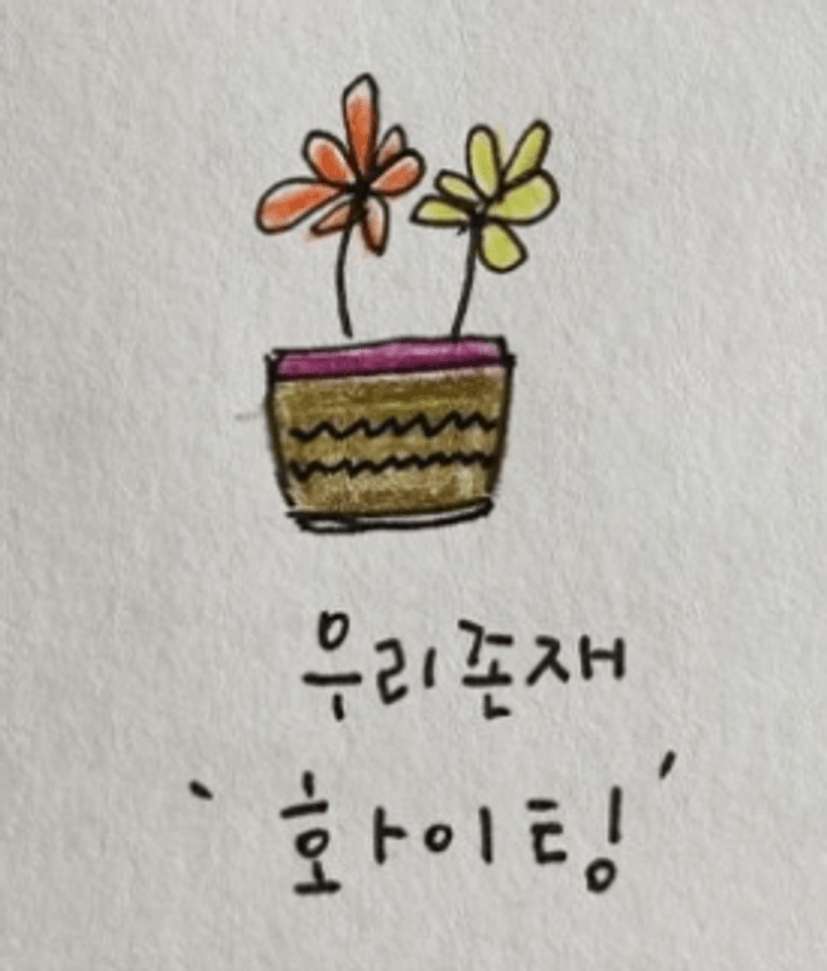 우리존재
'화이팅'